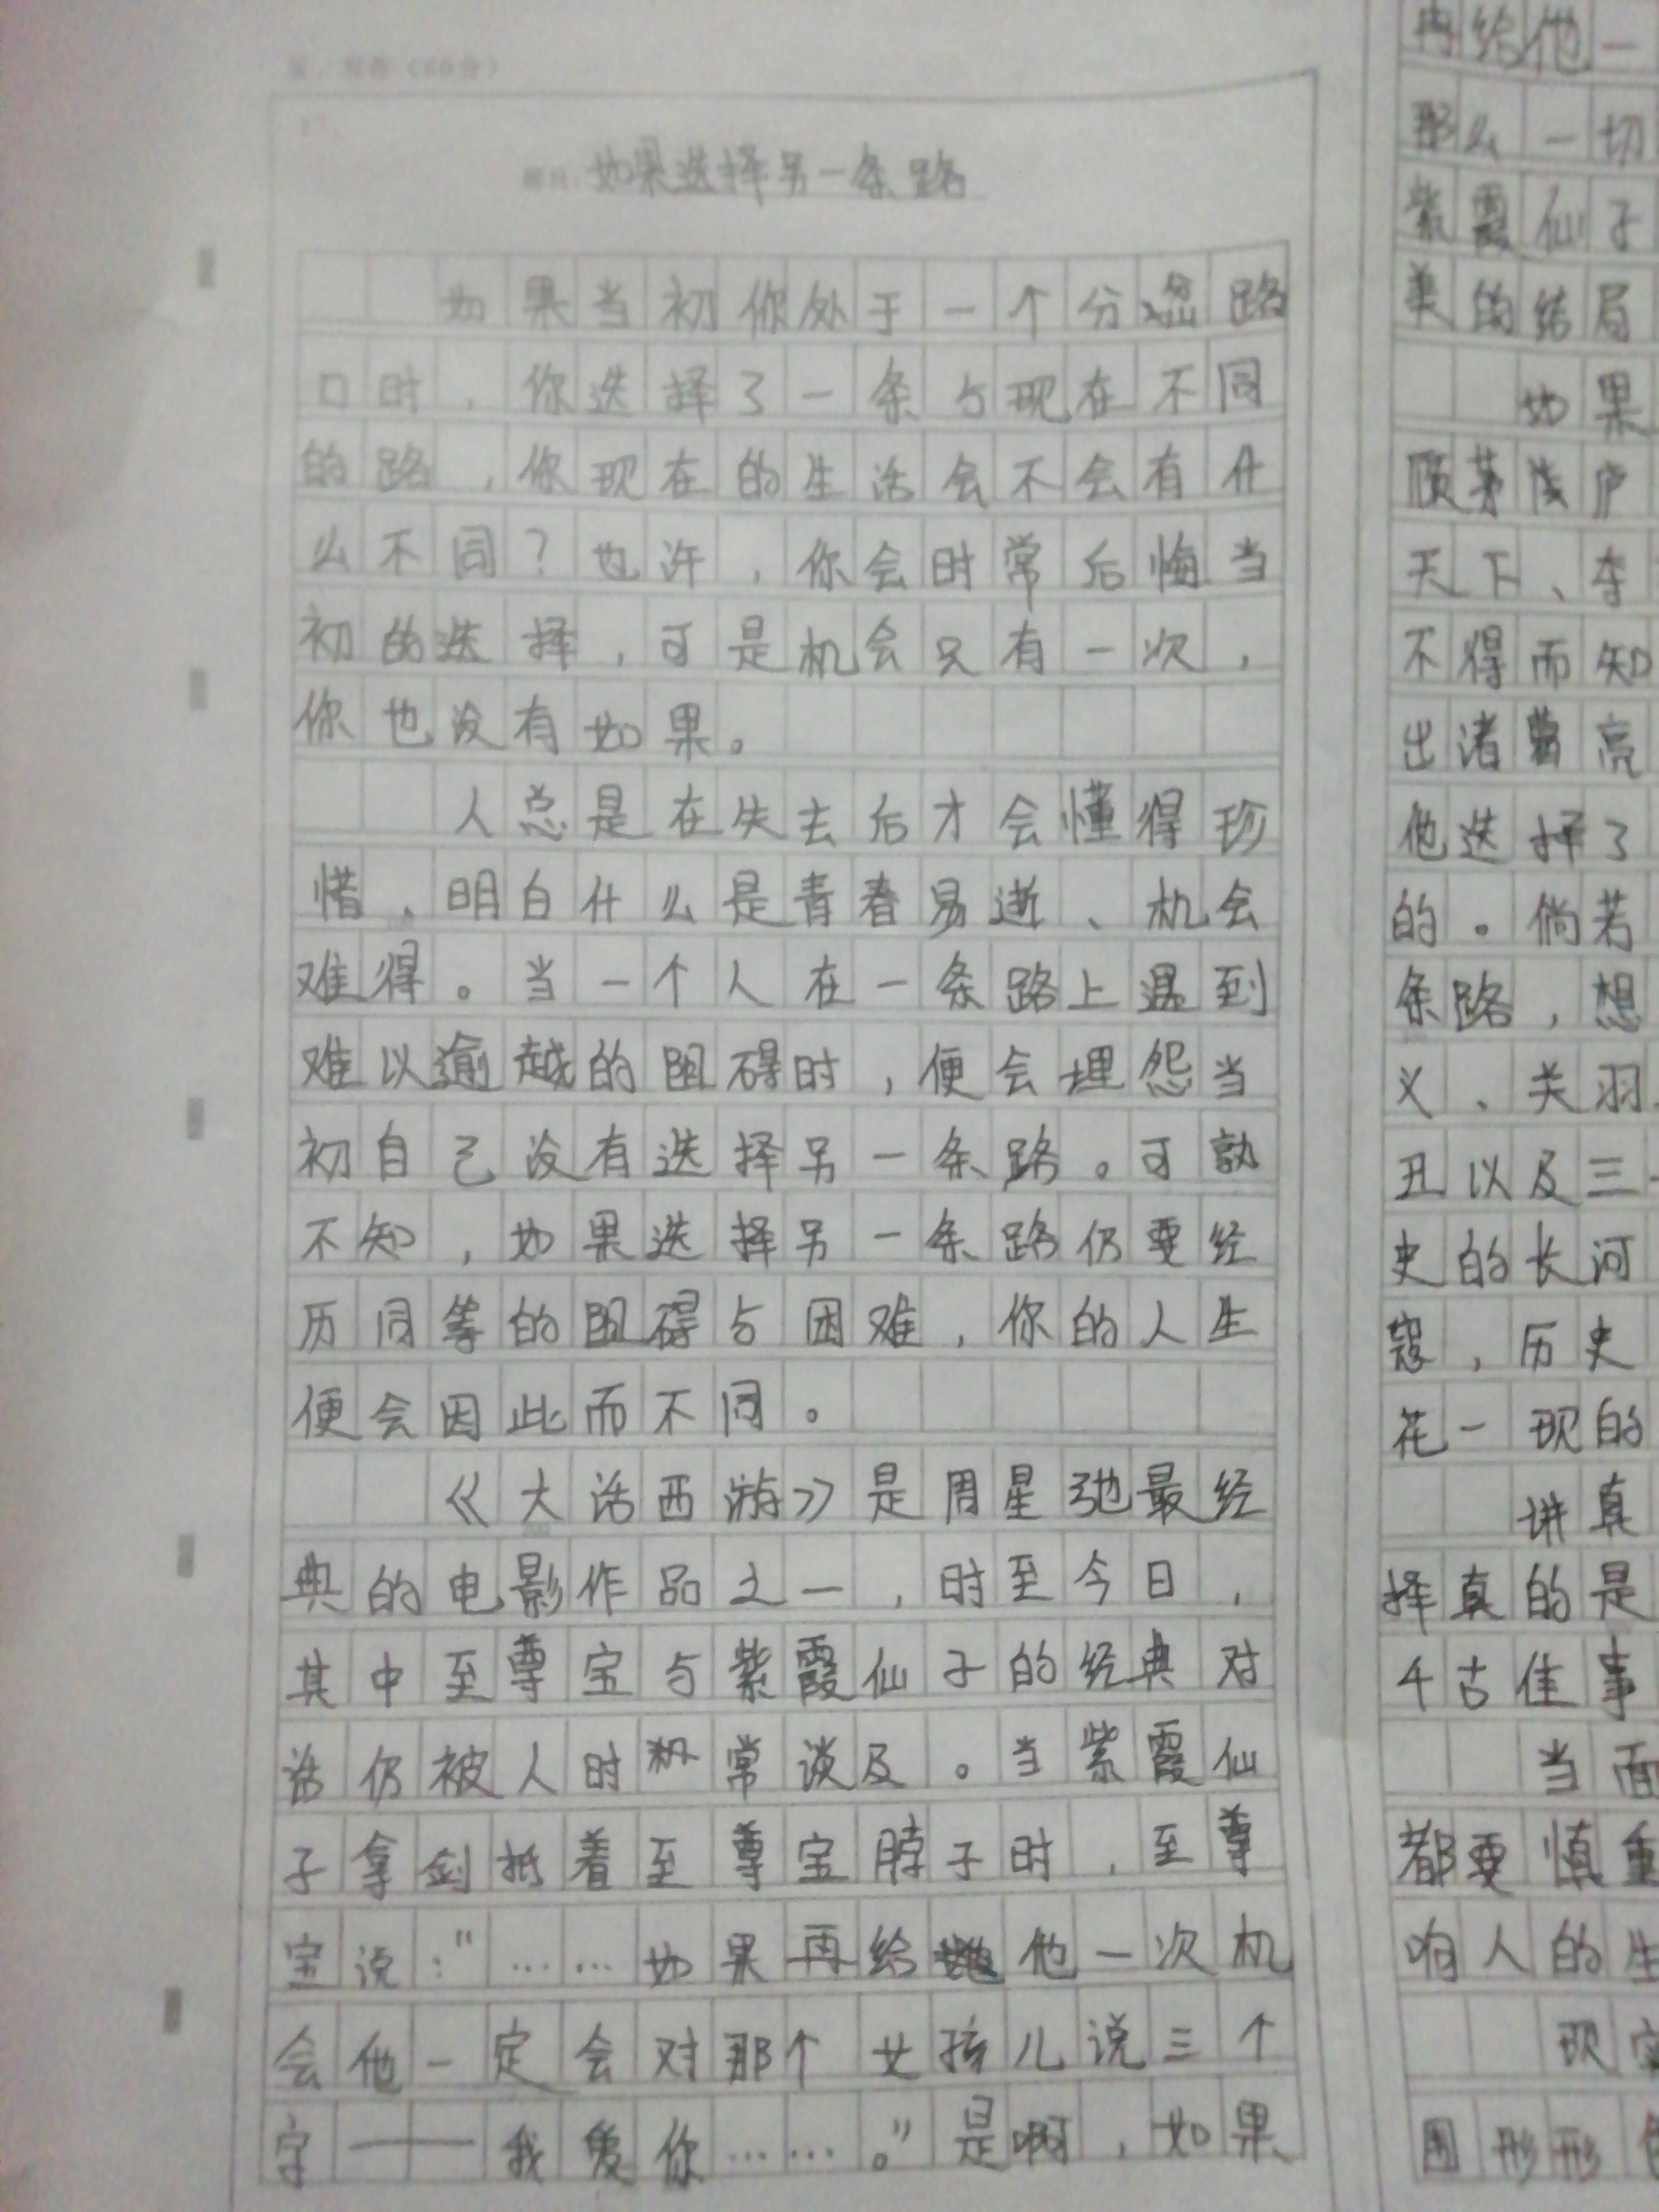 如果选择另一条路
如果当初你处于一个分岔路
口时，你选择了一条与现在不同
的路，你现在的生活会不会有什
么不同？也许，你会时常后悔当
初的选择，可是机会只有一次，
你也没有如果。
人总是在失去后才会懂得珍
惜，明白什么是青春易逝、机会
难得。当一个人在一条路上遇到
难以逾越的阻碍时，便会埋怨当
初自己没有选择另一条路。可孰
不知，如果选择另一条路仍要经
历同等的阻碍与困难，你的人生
便会因此而不同。
《大话西游》是周星驰最经
典的电影作品之一，时至今日，
其中至尊宝与紫霞仙子的经典对
话仍被人时常谈及。当紫霞仙
子拿剑抵着至尊宝脖子时，至尊
宝说："……如果再给他一次机
会他一定会对那个女孩儿说三个
字——我爱你……。"是啊，如果
再给他一
那么一切
紫霞仙子
美的结局
如果
顾茅庐
天下、夺
不得而知
出诸葛亮
他选择了
的。倘若
条路，想
义、关羽
丑以及三
史的长河
寇，历史
花一现的
讲真
择真的是
千古佳事
当面
都要慎重
响人的生
现实
围形形色